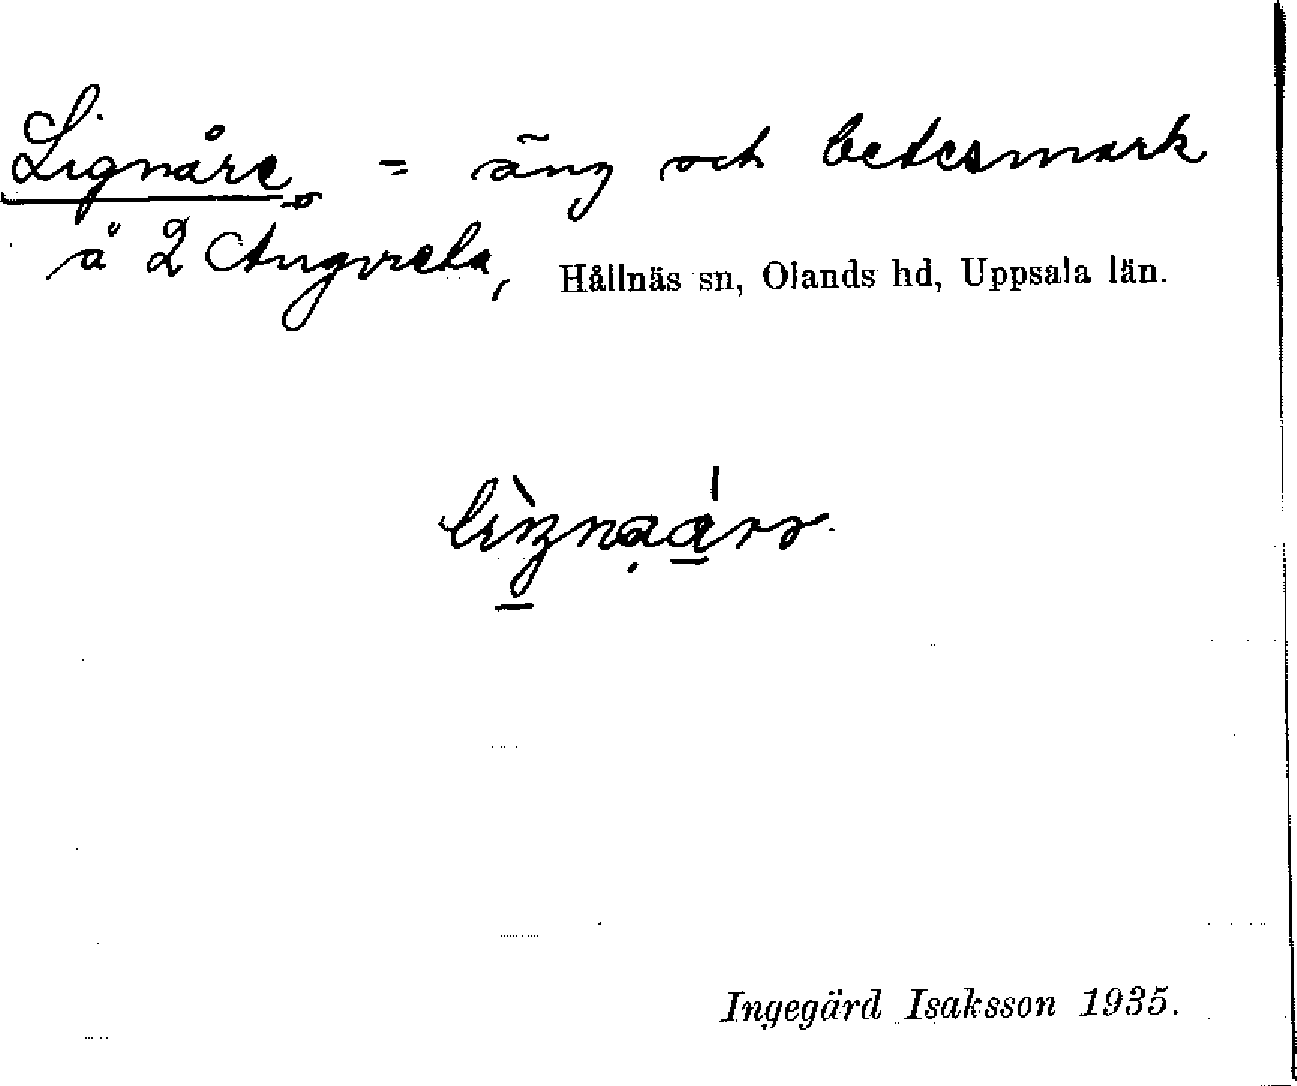 Lignåre = äng och betesmark
å 2 Ängvreta, Hållnäs sn, Olands hd, Uppsala län.
Ingegärd Isaksson 1935.